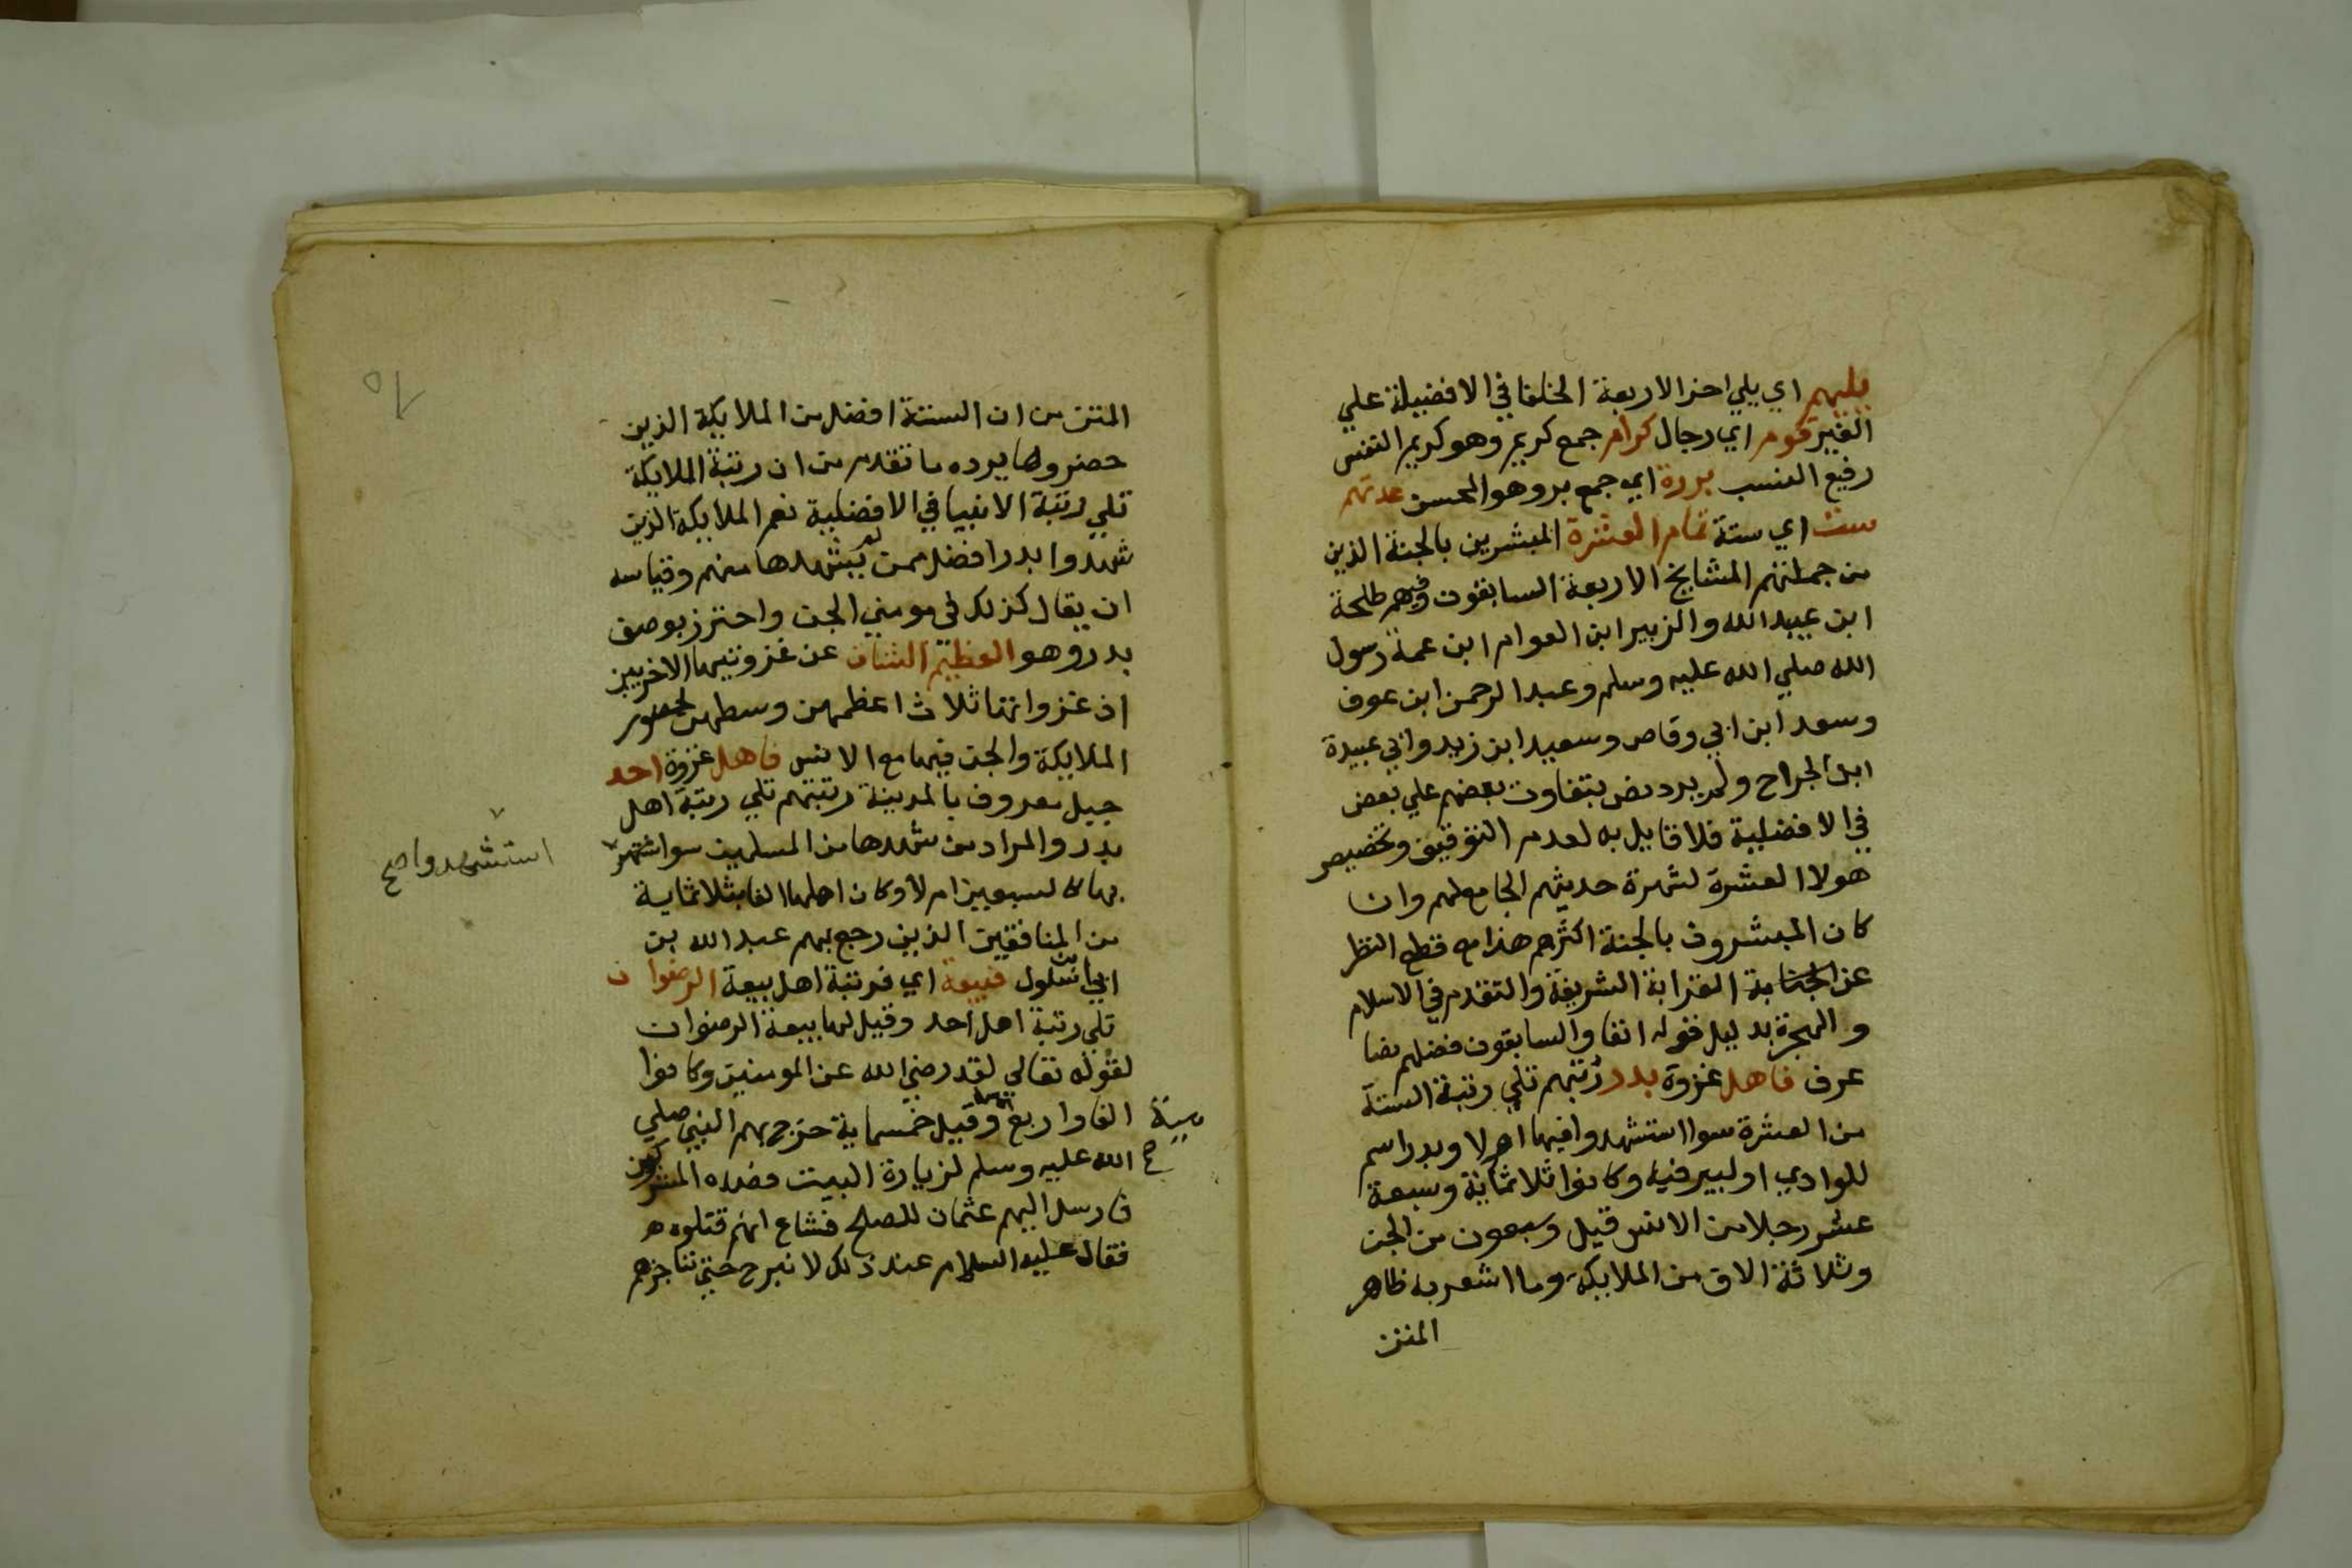 يليهم اي يلي اخر الاربعة الخلفا في الافضيلة علي
الغير قوم اي رجال كرام جمع كريم وهو كريم النفس
رفيع النسب بررة اي جمع بر وهو المحسن عدتهم
ست اي ستة تمام العشرة المبشرين بالجنة الذين
من جملتهم المشايخ الاربعة السابقون وفيهم طلحة
ابن عبيد الله والزبير ابن العوام ابن عمة رسول
الله صلي الله عليه وسلم وعبد الرحمن ابن عوف
وسعد ابن ابي وقاص وسعيد ابن زيد وابي عبيدة
ابن الجراح ولم يرد نص بتفاوت بعضهم علي بعض
في الافضلية فلا قايل به لعدم التوقيف وتخصيص
هولا العشرة لشهرة حديثهم الجامع لهم وان
كان المبشرون بالجنة اكثرهم هذا مع قطع النظر
عن القرابة الشريفة والتقدم في الاسلام
والهجرة بدليل قوله انفا والسابقون فضلهم نصا
عرف فاهل غزوة بدر رتبتهم تلي رتبة الستة
من العشرة سوا استشهدوا فيها ام لا وبدر اسم
للوادي او لبير فيه وكانوا ثلاثماية وسبعة
عشر رجلا من الانس قيل وسبعون من الجن
وثلاثة الاف من الملايكة وما اشعر به ظاهر
المتن
٥٦
المتن من ان الستة افضل من الملايكة الذين
حضروها يرده ما تقدم من ان رتبة الملايكة
تلي رتبة الانبيا في الافضلية نعم الملايكة الذين
شهدوا بدرا افضل ممن لم يشهدها منهم وقياسه
ان يقال كذلك في مومني الجن واحترز بوصف
بدر وهو العظيم الشان عن غزوتيها الاخريين
اذ غزواتها ثلاث اعظمهن وسطهن لحضور
الملايكة والجن فيها مع الانس فاهل غزوة احد
جبل معروف بالمدينة رتبتهم تلي رتبة اهل
بدر والمراد من شهدها من المسلمين سوا اشتهر
استشهدوا صح
بها كالسبعين ام لا وكان اهلها الفا بثلاثماية
من المنافقين الذين رجع بهم عبد الله بن
ابي ابن سلول فبيعة اي فرتبة اهل بيعة الرضوان
تلي رتبة اهل احد وقيل لها بيعة الرضوان
لقوله تعالي لقد رضي الله عن المومنين وكانوا
الفا واربع وقيل خمسماية خرج بهم النبي صلي
مية صح
الله عليه وسلم لزيارة البيت فصده المشركون
فارسل اليهم عثمان للصلح فشاع انهم قتلوه
فقال عليه السلام عند ذلك لا نبرح حتي نناجزهم